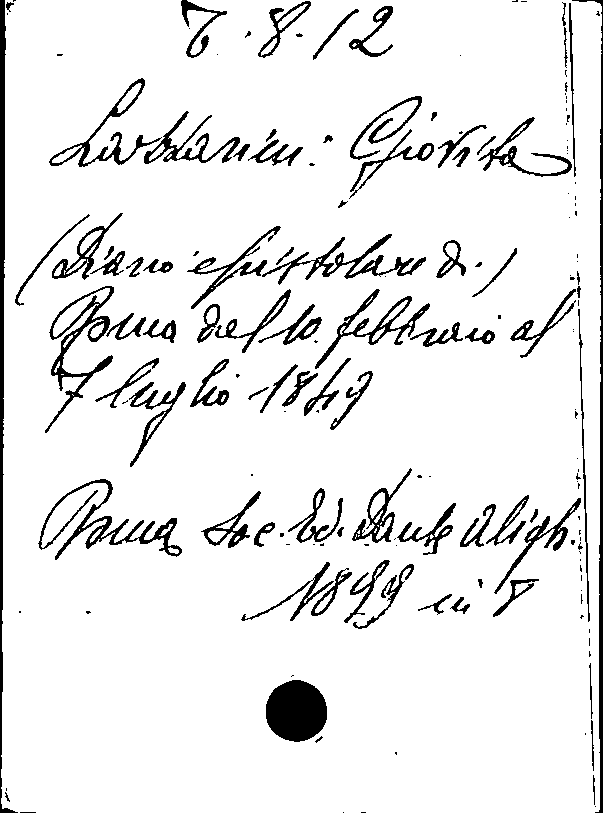 7.8.12
Lazzarini: Giovita
(Diario epistolare di)
Roma dal 10 febbraio al
7 luglio 1849
Roma Soc. Ed. Dante Aligh.
1899 in 8